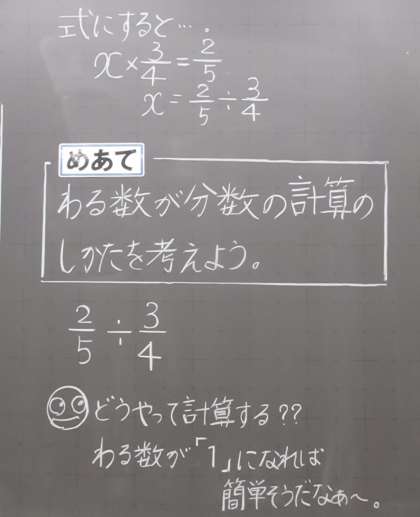 式にすると…。
x×3/4=2/5
x=2/5÷3/4
めあて
わる数が分数の計算の
しかたを考えよう。
2/5÷3/4
どうやって計算する??
わる数が「1」になれば
簡単そうだなぁ〜。